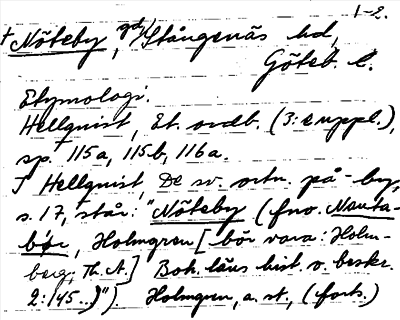 1-2.
† Nöteby, gd, Stångenäs hd,
Göteb. l.
Etymologi.
Hellquist, Et. ordb. (3: e uppl.),
sp. 115a, 115b, 116a.
I Hellquist, De sv. ortn. på -by,
s. 17, står: "Nöteby (fno. Nauta-
bør, Holmgren [bör vara: Holm-
berg. Th. A.] Boh. läns hist. o. beskr.
2: 145..)"). Holmgren, a. st., (forts.)